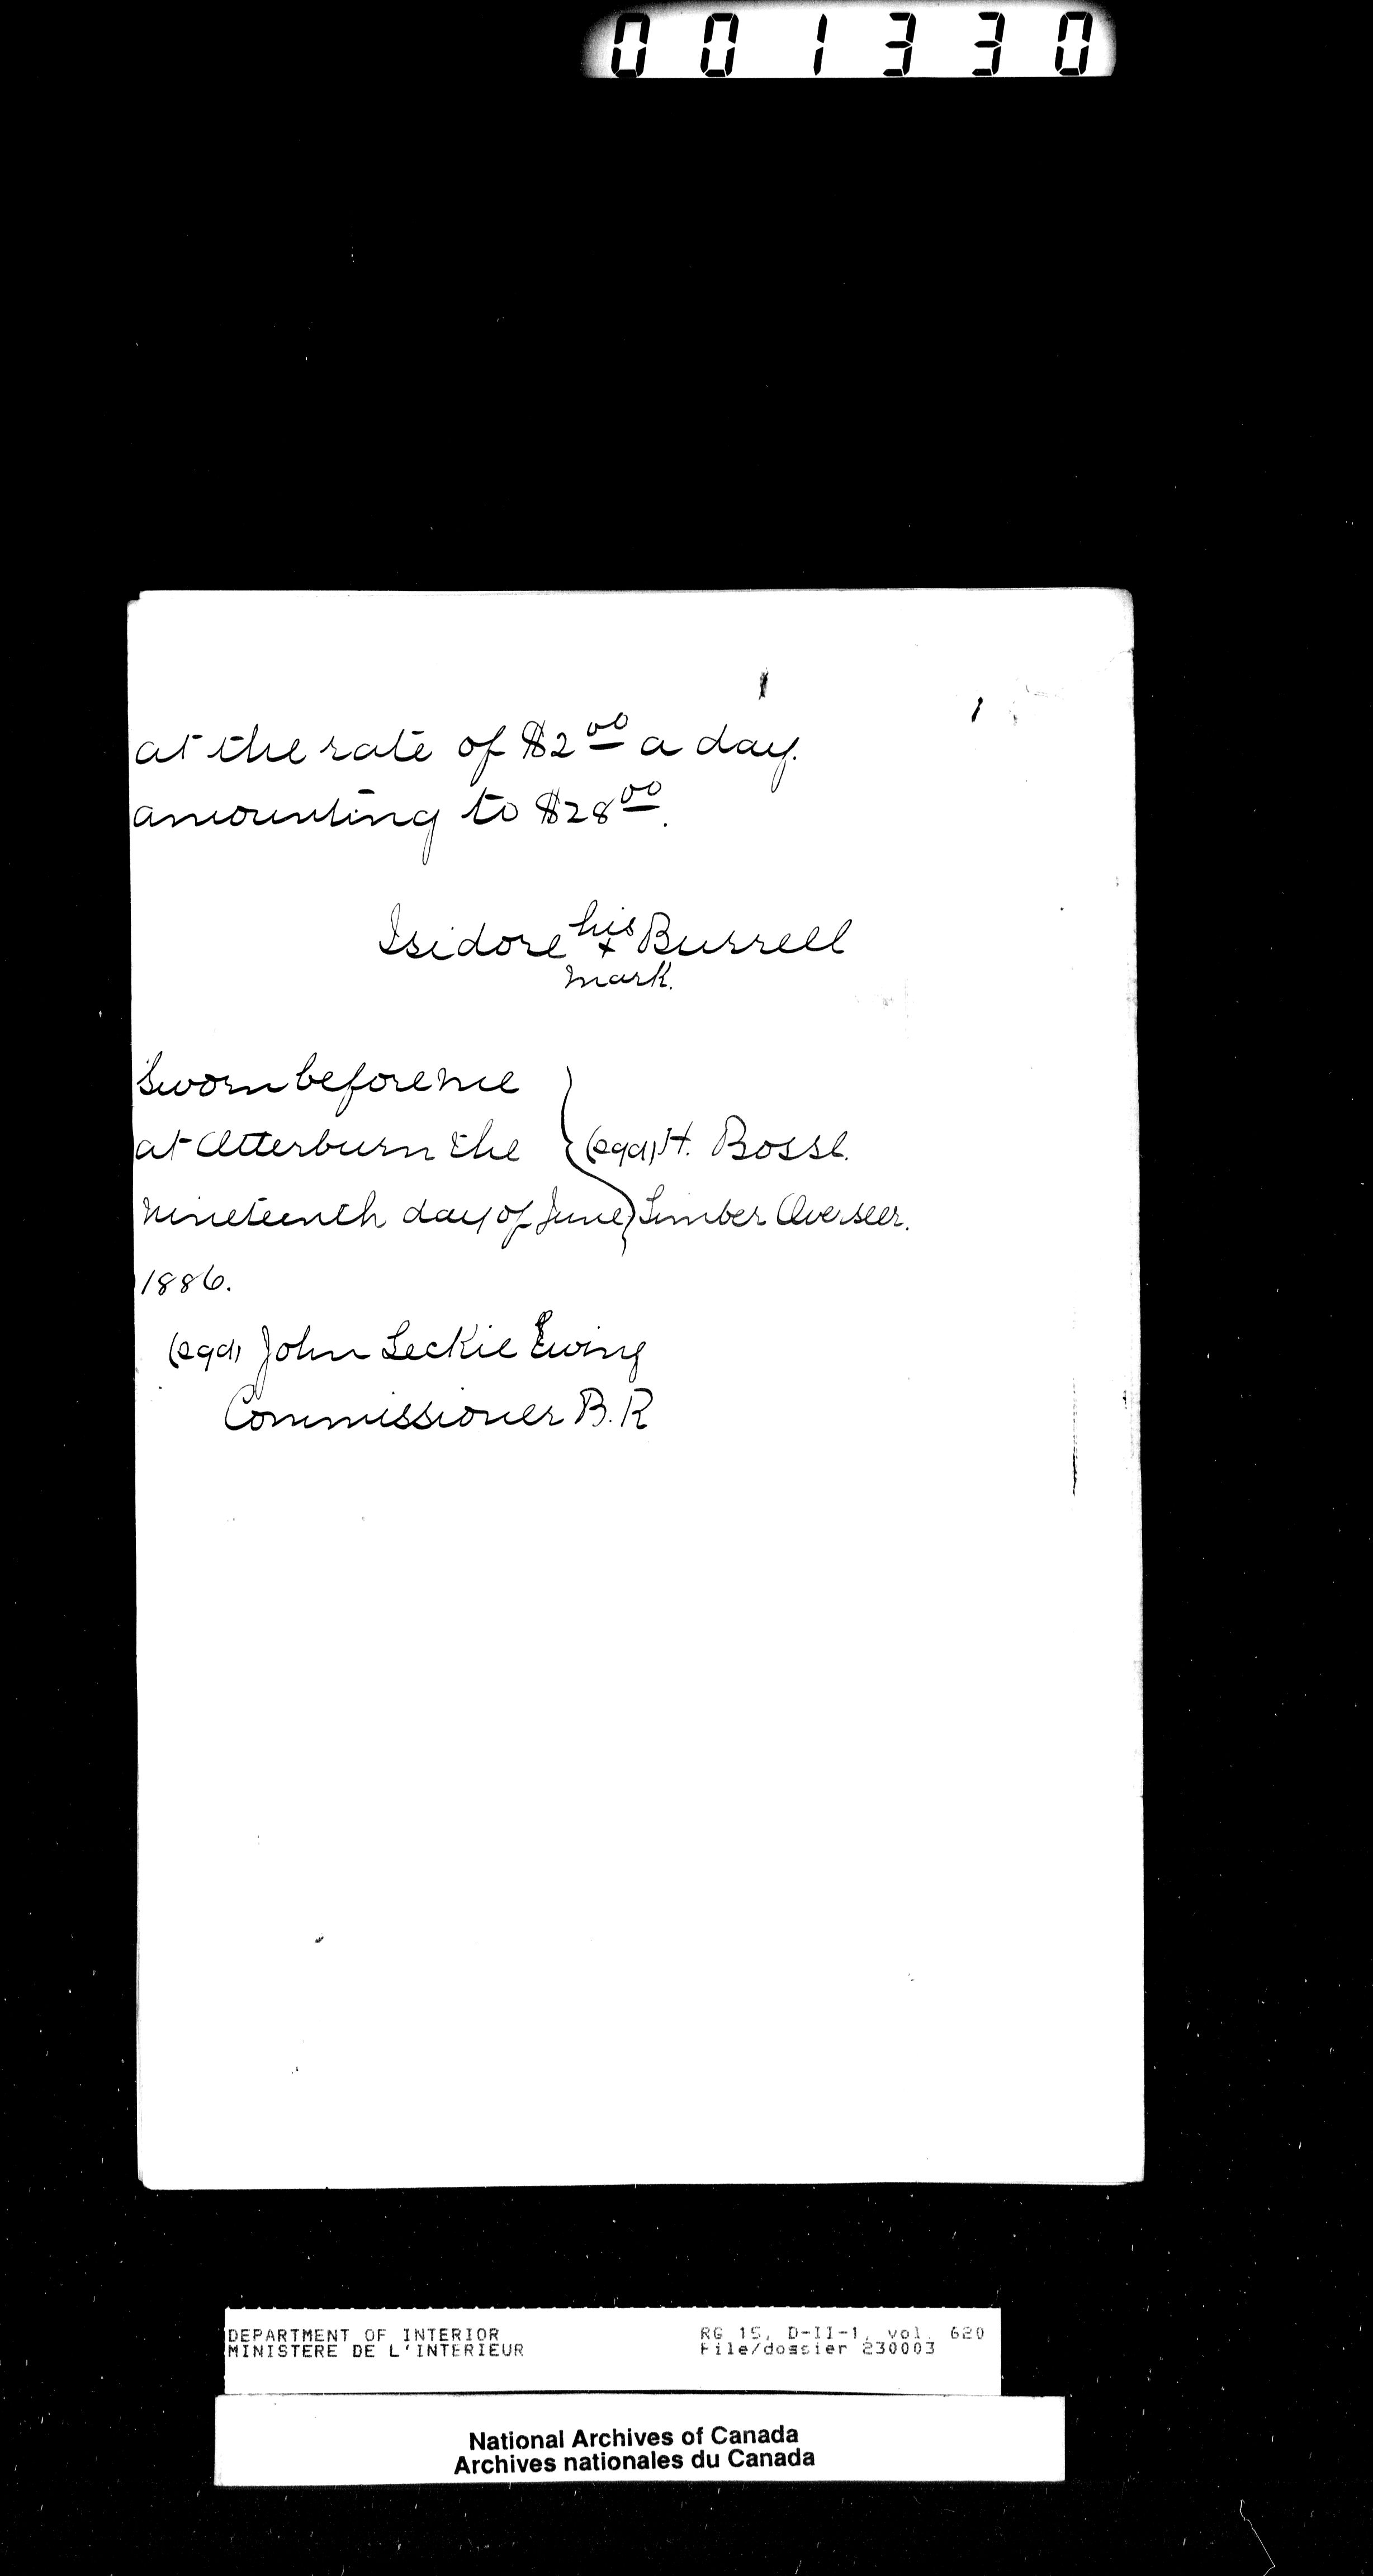 001330
at the rate of $2 00 a day.
amounting to $28 00.
Isidore his + Burrell
mark.
Sworn before me
at Otterburn the (sgd) H. Bossé.
nineteenth day of June Timber Overseer.
1886.
(sgd) John Leckie Ewing
Commissioner B.R
DEPARTMENT OF INTERIOR RG 15, D-II-1, vol. 620
MINISTERE DE L'INTERIEUR File/dossier 230003
National Archives of Canada
Archives nationales du Canada